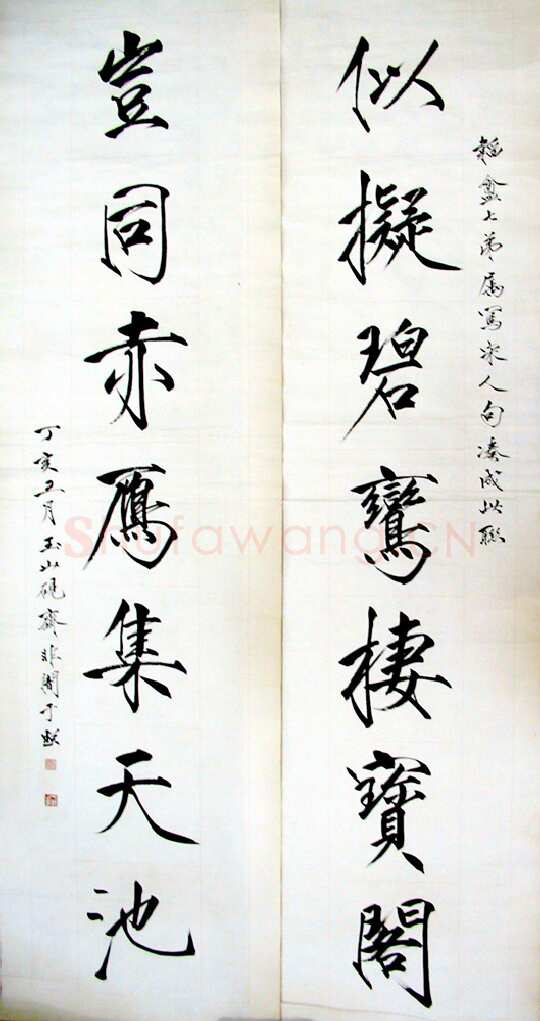 盦七弟屬寫宋人句湊成此聯
似擬碧鸞棲寶閣
豈同赤鴈集天池
丁亥五月玉山硯齋非闇于照
Shufawang.CN